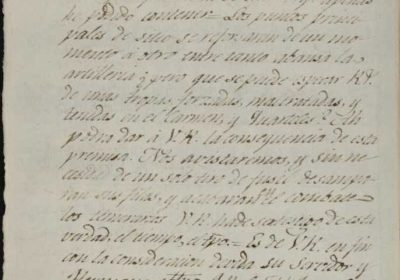 he podido contener. Los puntos princi-
pales de sitio se refor aran de un mo-
mento á otro entre tanto abansa la
artilleria; pero que se puede esperar V.E.
de unas tropas forzadas, maltratadas, y
en el Carmen, y Quarteles?
podra dar á V.E. la consequencia de esta
premisa. Nos avistaremos, y sin ne-
cesidad de un solo tiro de fusil desampa-
ran sus filas, y
los temerarios. V.E. hade ser testigo de esta
verdad, el tiempo, el tpo. = Es de V.E. en fin
con la consideracion devida su Servidor y